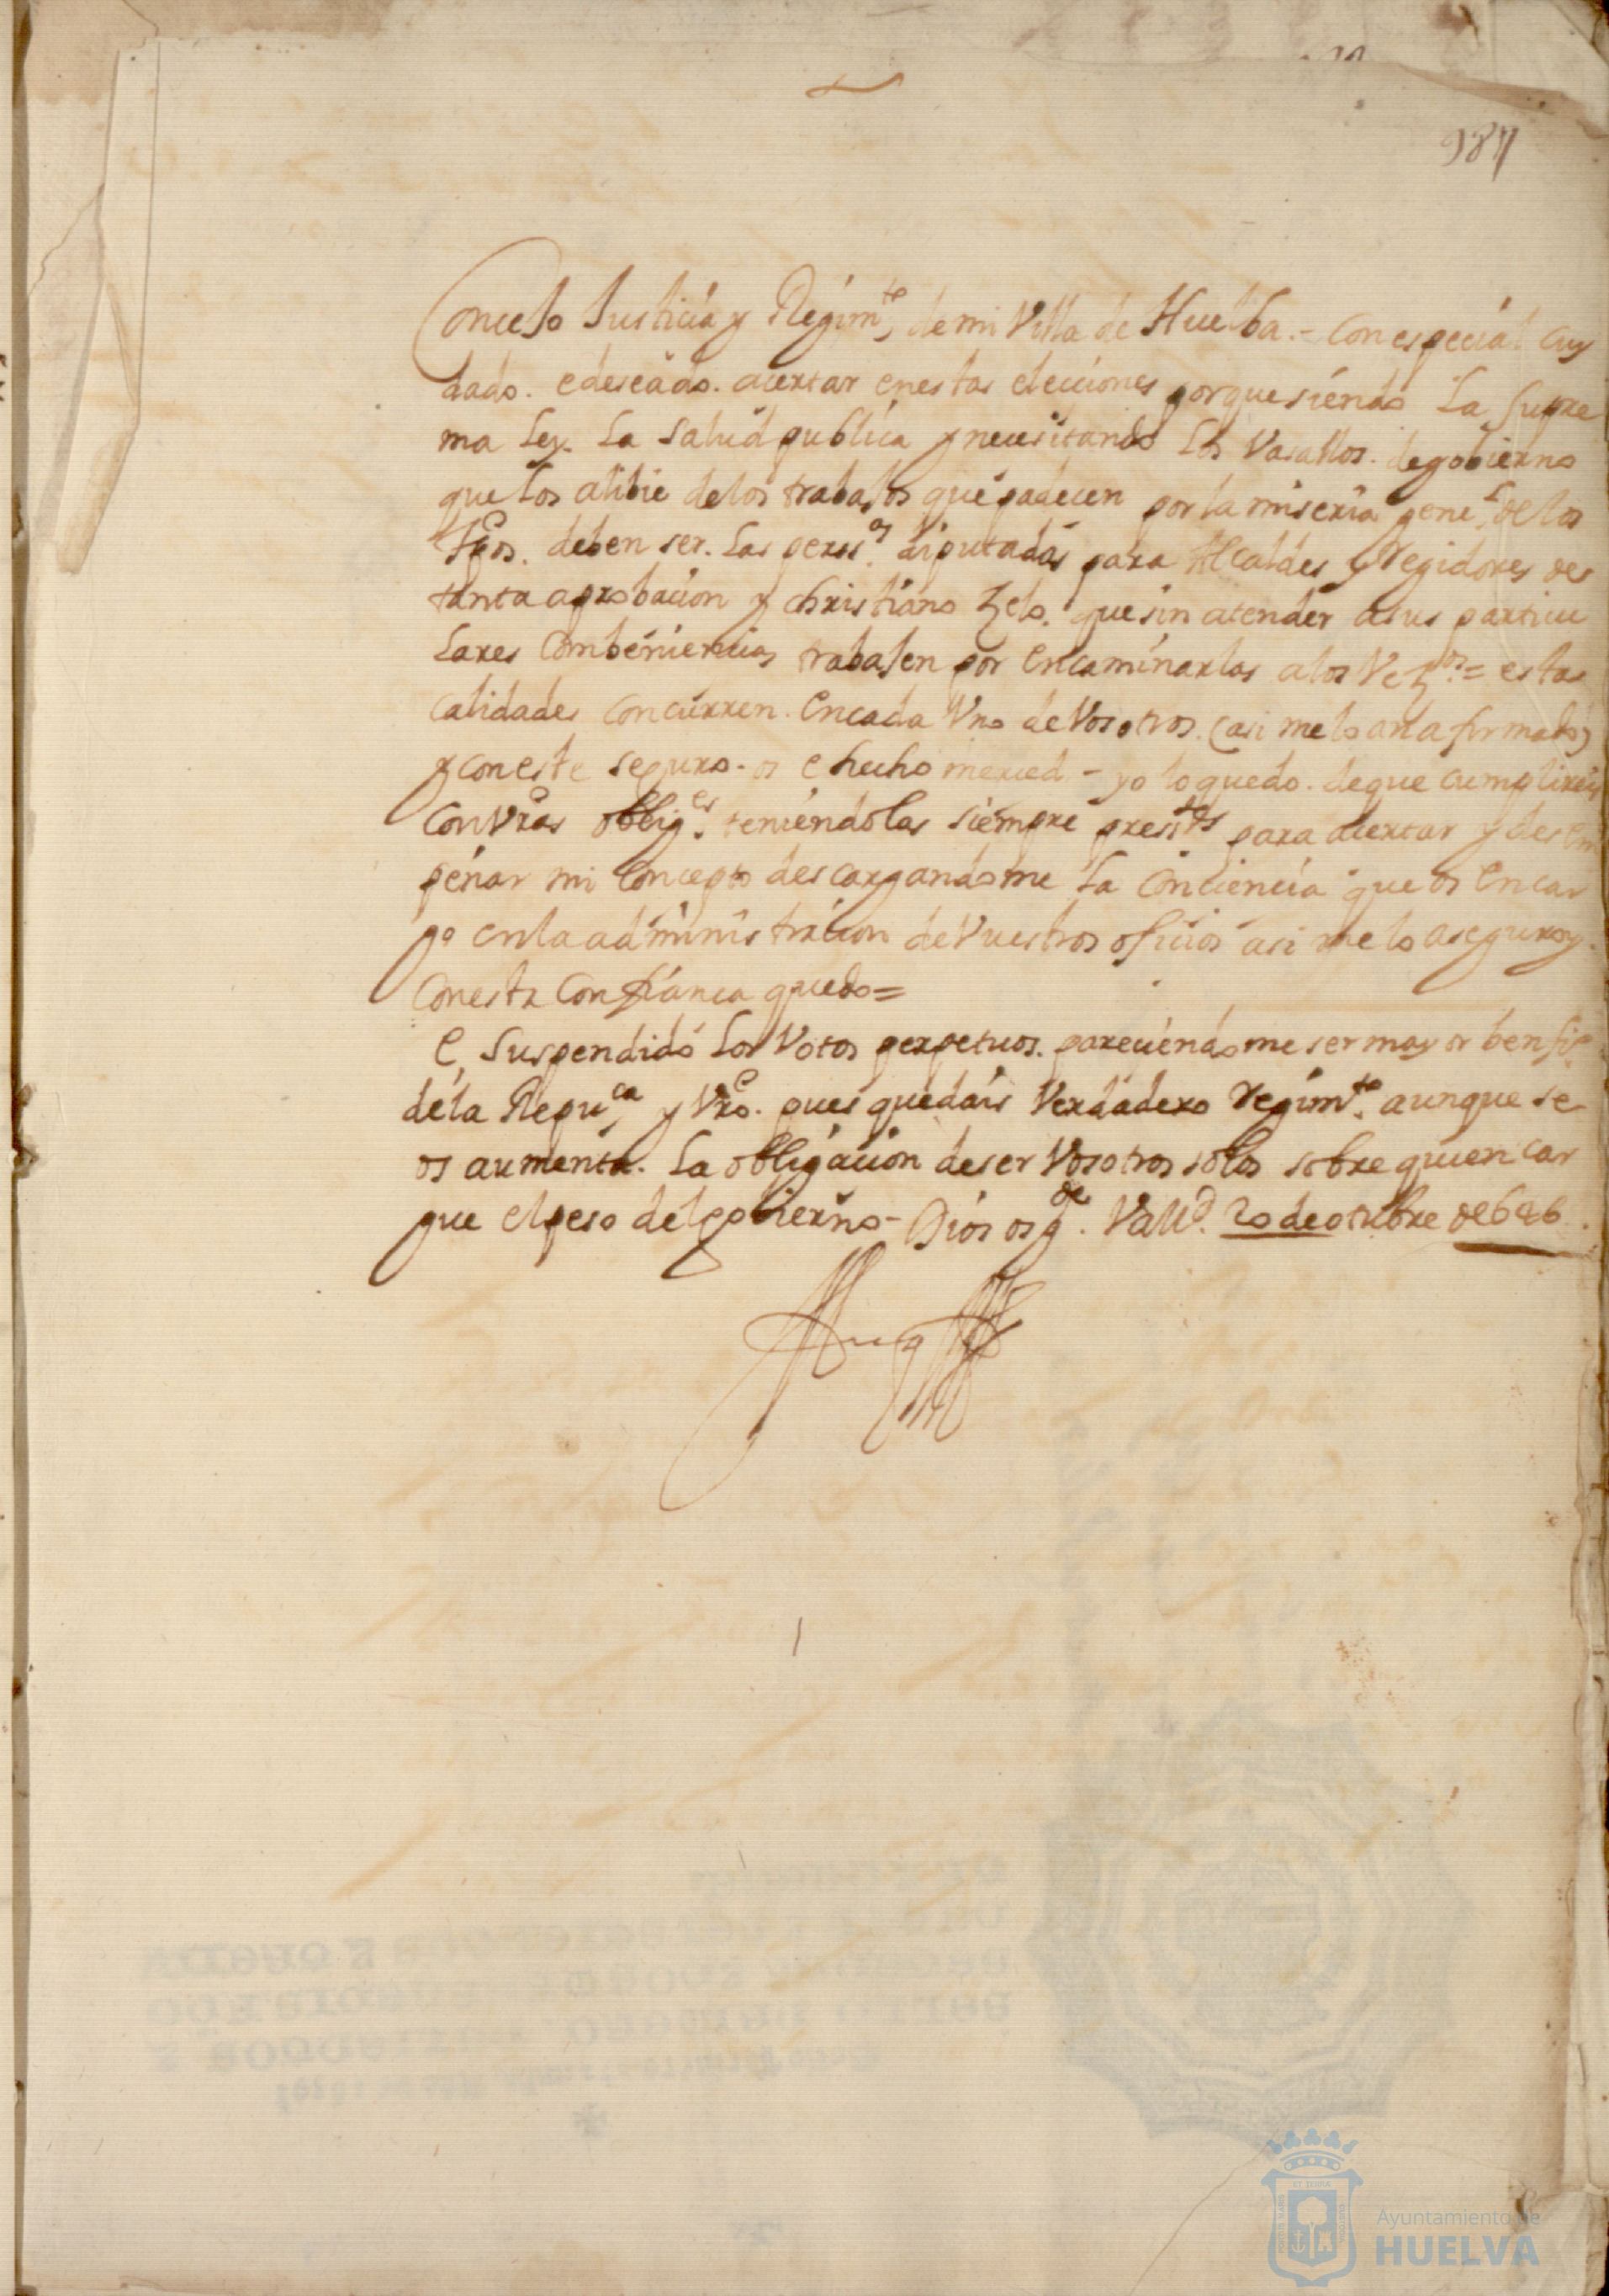 987
Concejo Justicia y Regimte de mi Villa de Huelba. - Con especial Cuy
dado. e deseado. acertar en estas elecciones porque siendo La supre
ma Ley. La salud publica y necesitando Los Vasallos. de gobierno
que los alibie de los trabajos que padecen por la miseria genel de los
tpos. deben ser. Las persas diputadas para Alcaldes y Regidores de
tanta aprobacion y christiano Zelo. que sin atender a sus particu
Lares Combeniencias trabajen por encaminarlas a los Vezos = estas
calidades concurren. en cada Vno de Vosotros. (asi me lo an afirmado)
y con este seguro. os e hecho merced - yo lo quedo. de que cumplireis
con Vras obliges teniendolas siempre presites para acertar y desem
peñar mi Concepto descargandome La Conciencia que os encar
go en la administracion de Vuestros oficios asi me lo aseguro y.
Con esta Confianca quedo =
E, Suspendido Los Votos perpetuos. pareciendome ser mayor benfio
de la Repuca y Vro. pues quedais Verdadero regimte. aunque se
os aumenta. La obligacion de ser Vosotros solos sobre quien car
gue el peso del gobierno - Dios os gde. Valld. 20 de otubre de 646
Ayuntamiento de
HUELVA